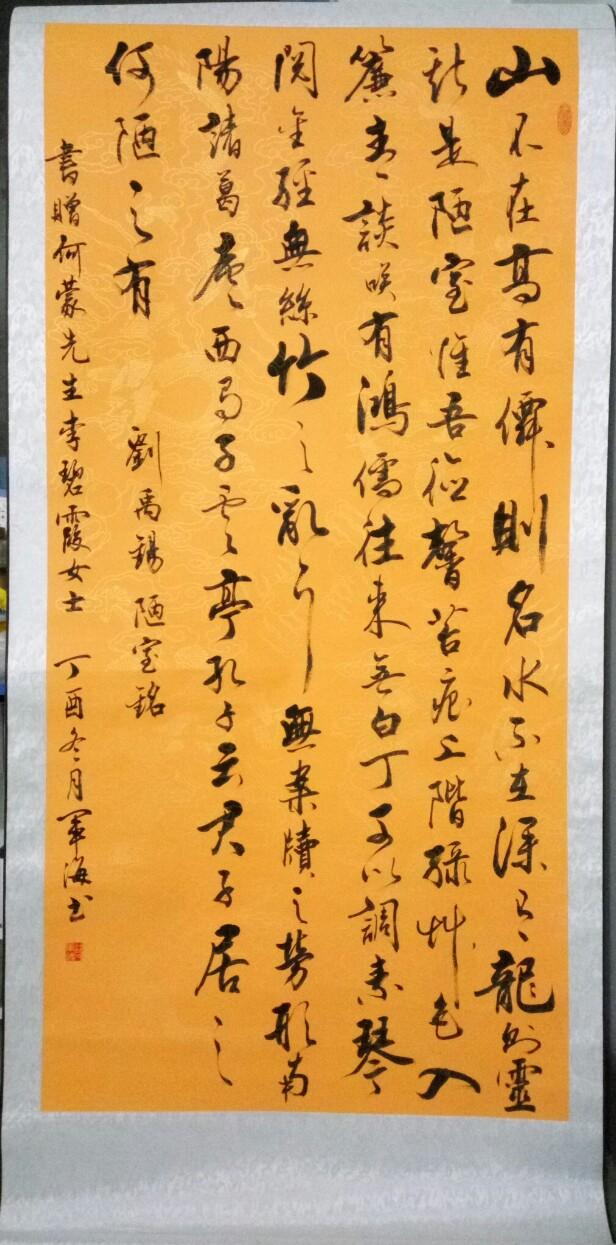 山不在高有僊則名水不在深有龍則靈
斯是陋室惟吾德馨苔痕上階綠艸色入
簾青談咲有鴻儒往来無白丁可以調素琴
閱金經無絲竹之亂耳無案牘之勞形南
陽諸葛廬西蜀子雲亭孔子云君子居之
何陋之有
劉禹錫陋室銘
書贈何蒙先生李碧霞女士 丁酉冬月軍海书